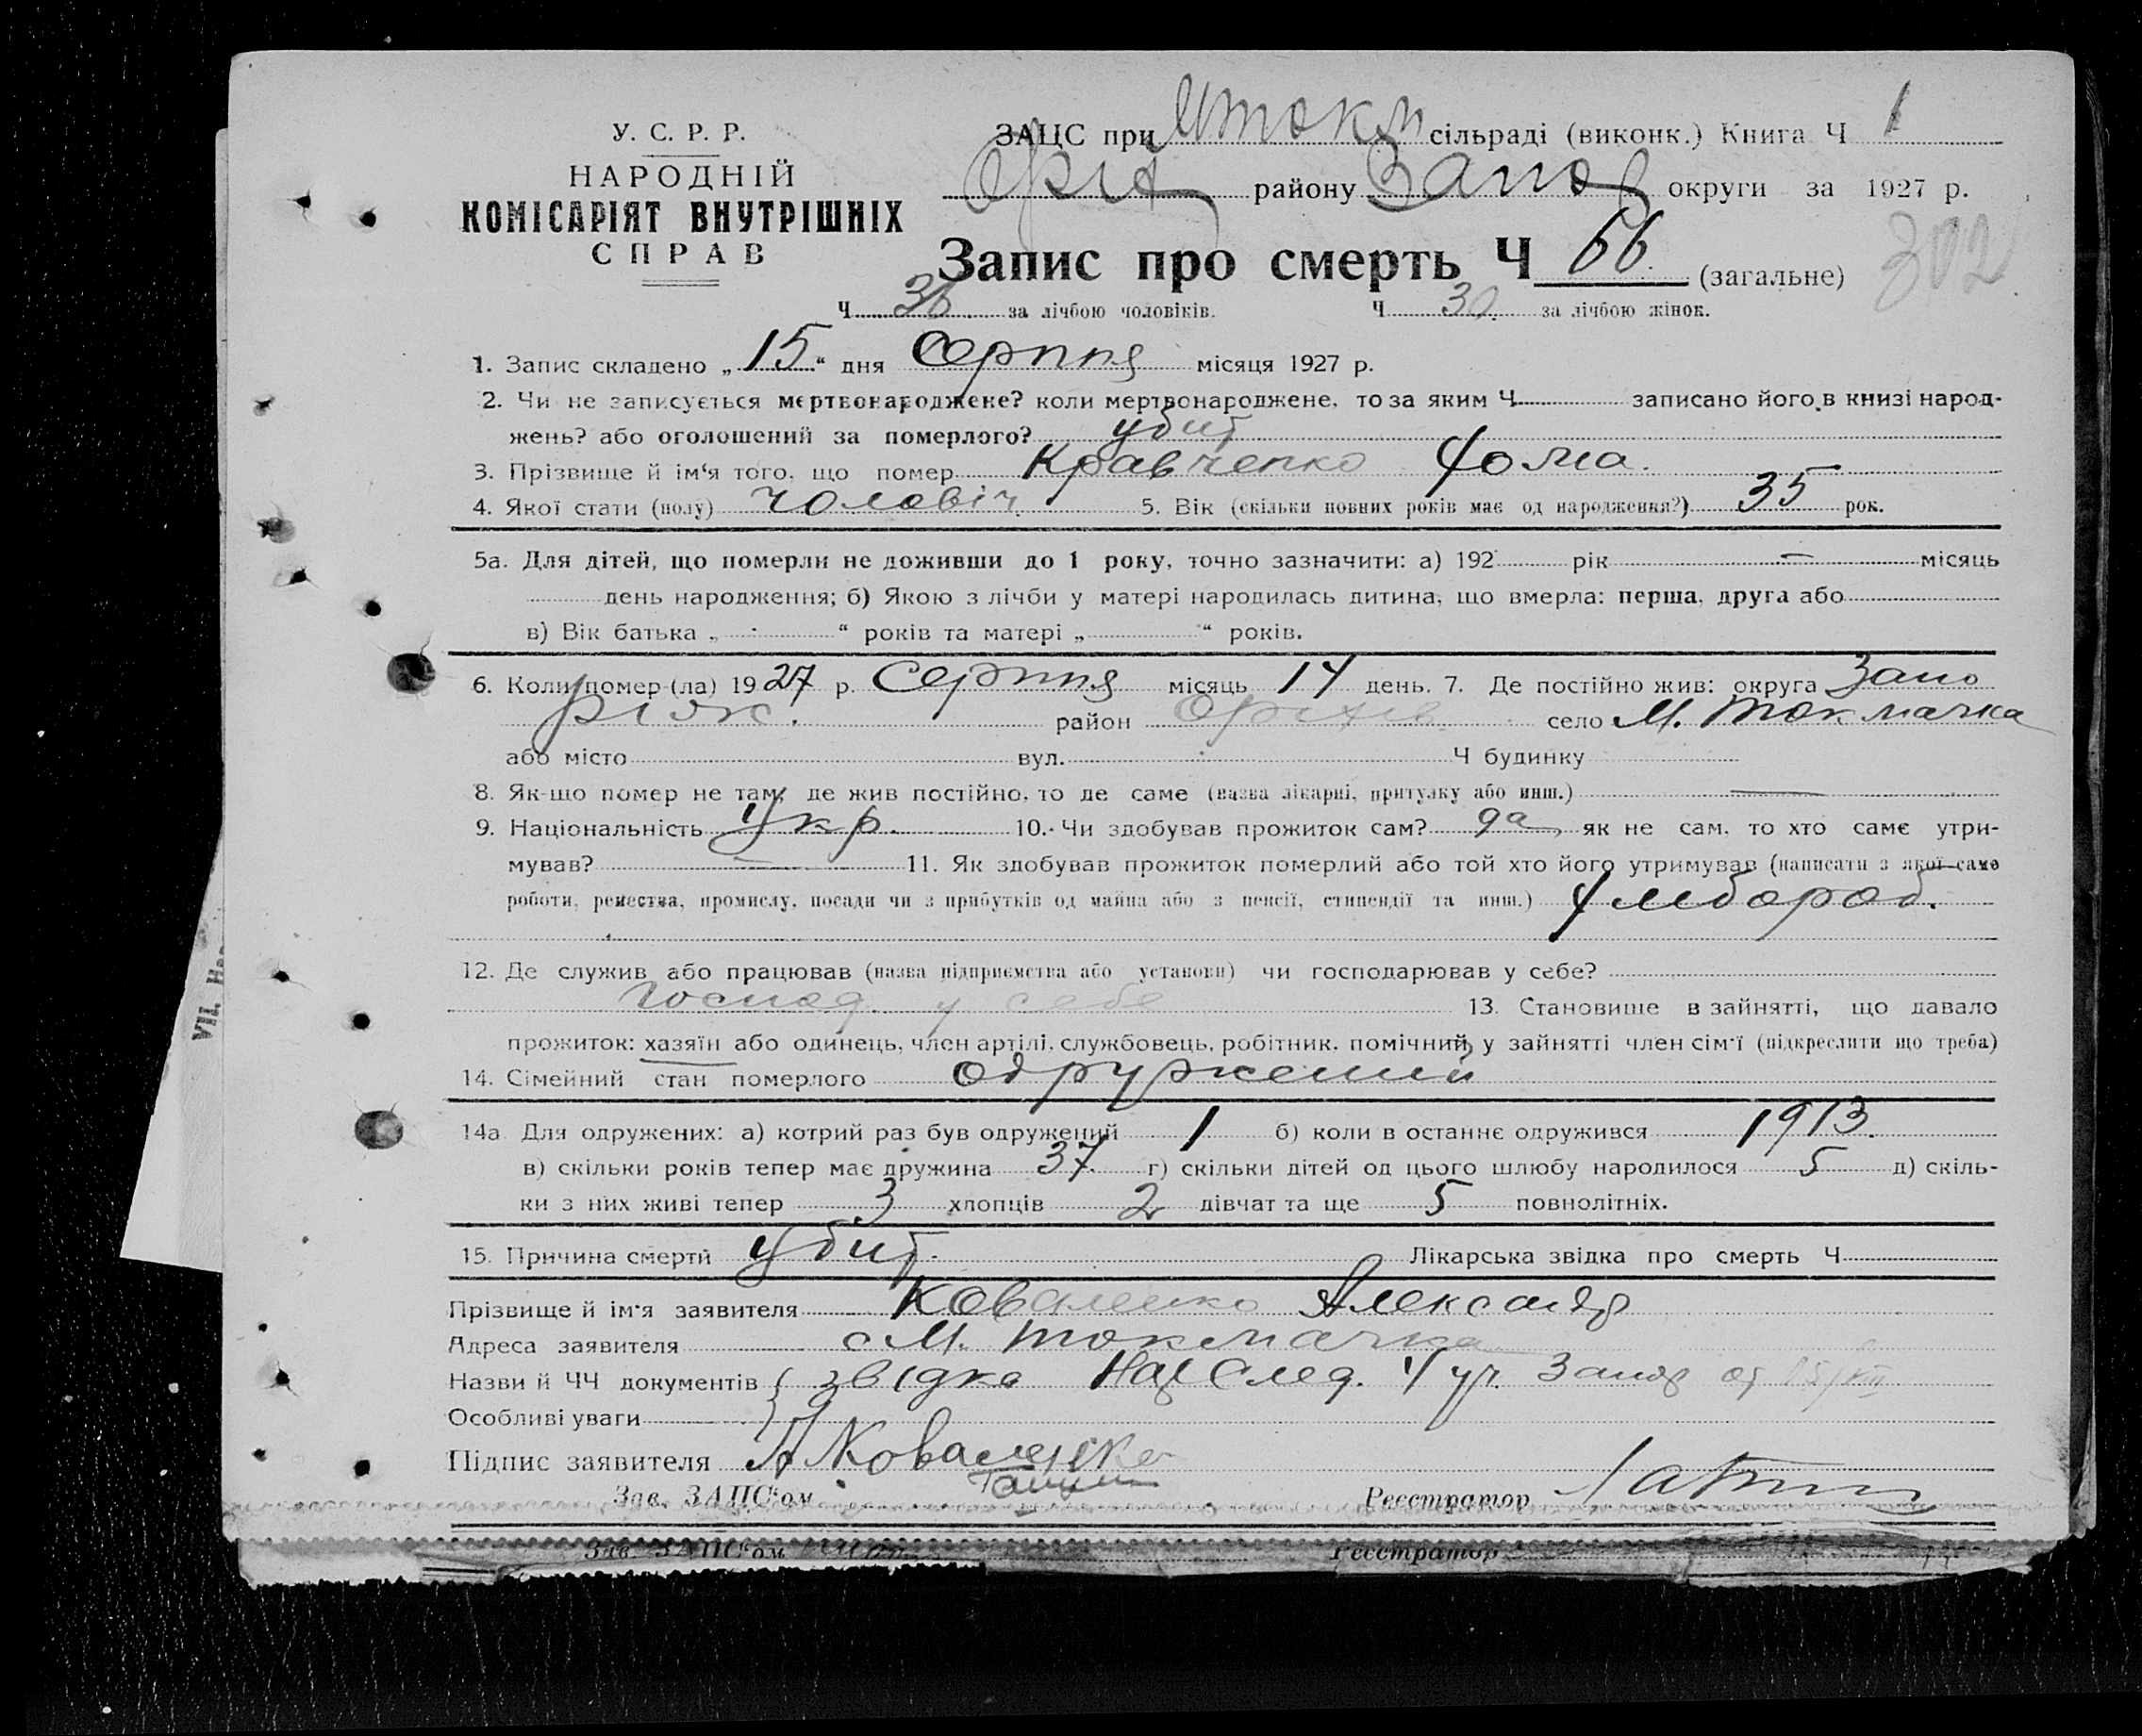 У. С. Р. Р.
НАРОДНІЙ
КОМІСАРІЯТ ВНУТРІШНІХ
СПРАВ
ЗАЦС при Мтокм сільраді (виконк.) Книга Ч 1
Оріх району Запор округи за 1927 р.
Запис про смерть Ч 66 (загальне) 302
Ч 36 за лічбою чоловіків. Ч 30 за лічбою жінок.
1. Запис складено „15“ дня Серпня місяця 1927 р.
2. Чи не записується мертвонароджене? коли мертвонароджене, то за яким Ч записано його в книзі народ-
жень? або оголошений за померлого? убит
3. Прізвище й ім‘я того, що помер Кравченко Фома.
4. Якої стати (полу) чоловіч. 5. Вік (скільки повних років має од народження?) 35 рок.
5а. Для дітей, що померли не доживши до 1 року, точно зазначити: а) 192 рік — місяць
день народження; б) Якою з лічби у матері народилась дитина, що вмерла: перша, друга або
в) Вік батька „ “ років та матері „ “ років.
6. Коли помер-(ла) 1927 р. Серпня місяць 14 день. 7. Де постійно жив: округа Запо
ріжс. район Оріхів село М. Токмачка
або місто вул. Ч будинку
8. Як-що помер не там, де жив постійно, то де саме (назва лікарні, притулку або инш.) —
9. Національність Укр. 10. Чи здобував прожиток сам? да, як не сам, то хто саме утри-
мував? — 11. Як здобував прожиток померлий або той хто його утримував (написати з якої саме
роботи, ремества, промислу, посади чи з прибутків од майна або з пенсії, стипендії та инш.) Хлібороб.
12. Де служив або працював (назва підприємства або установи) чи господарював у себе?
Господ. у себе 13. Становище в зайнятті, що давало
прожиток: хазяїн або одинець, член артілі, службовець, робітник, помічний у зайнятті член сім‘ї (підкреслити що треба)
14. Сімейний стан померлого одружений
14а Для одружених: а) котрий раз був одружений 1 б) коли в останнє одружився 1913.
в) скільки років тепер має дружина 37. г) скільки дітей од цього шлюбу народилося 5 д) скіль-
ки з них живі тепер 3 хлопців 2 дівчат та ще 5 повнолітніх.
15. Причина смерти убит. Лікарська звідка про смерть Ч
Прізвище й ім‘я заявителя Коваленко Александр
Адреса заявителя с М. Токмачка
Назви й ЧЧ документів звідка Нар След. 4 уч. Запор од 15/VIII
Особливі уваги
Підпис заявителя А Коваленко
Зав. ЗАПС‘ом Реєстратор
Зав. ЗАПС‘ом Реєстратор
VII. На